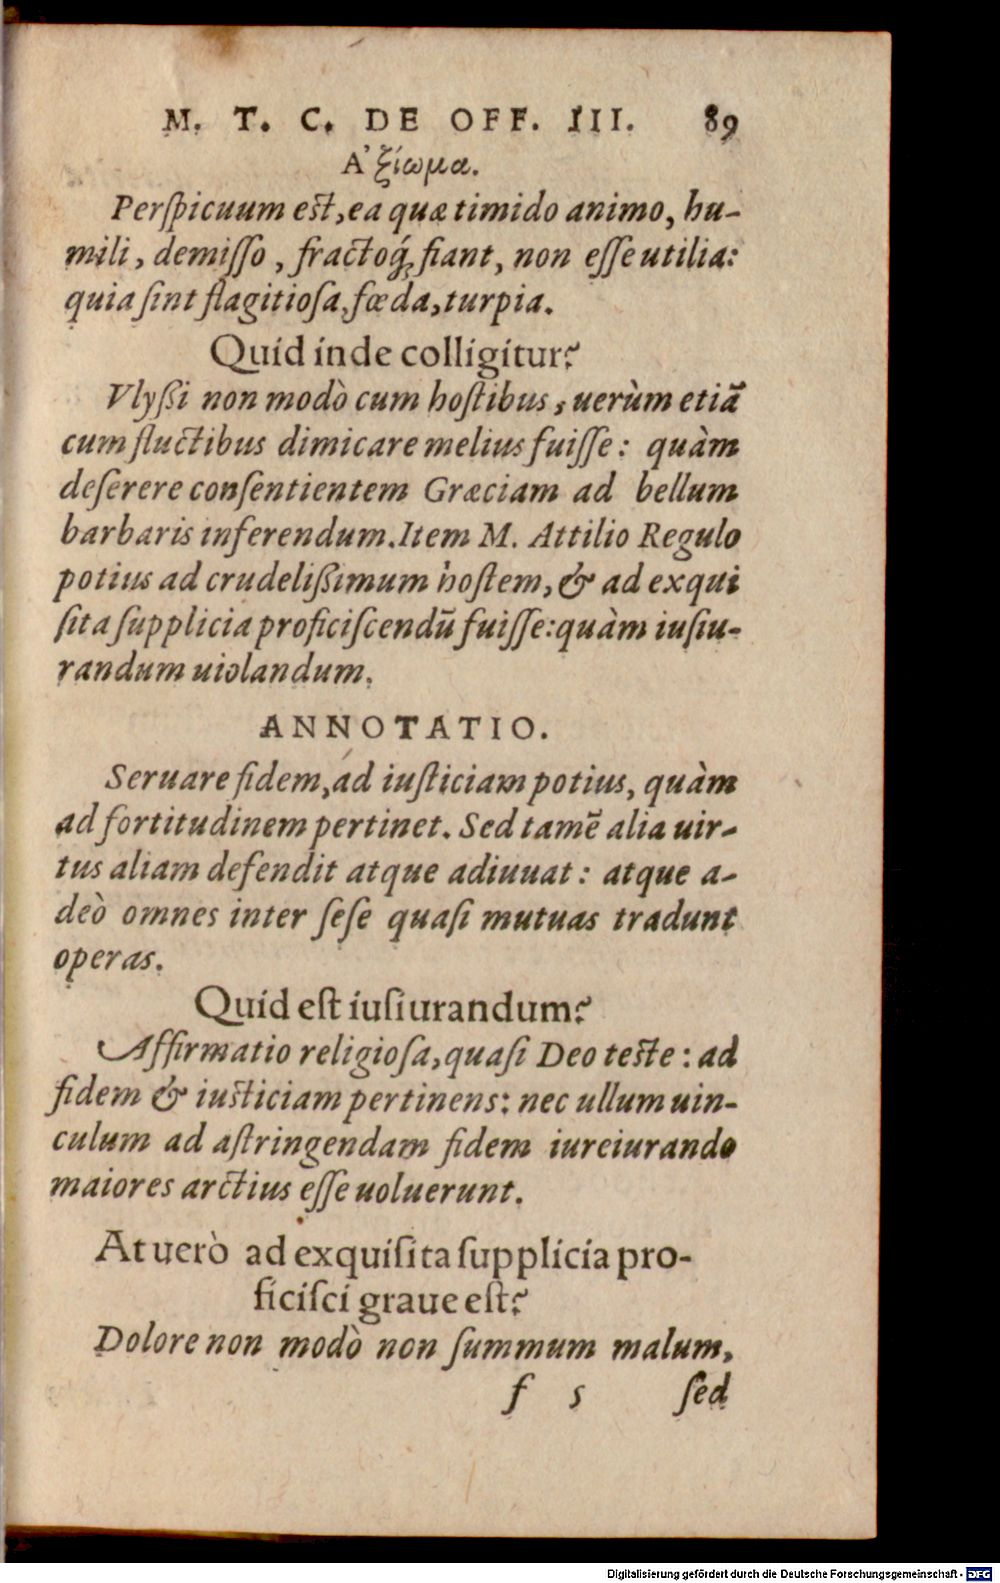 M. T. C. DE OFF. III. 89
Ἀξίωμα.
Perſpicuum eſt, ea quæ timido animo, hu-
mili, demiſſo, fractoq́; fiant, non eſſe utilia:
quia ſint flagitioſa, fœda, turpia.
Quid inde colligitur?
Vlyßi non modò cum hoſtibus, uerùm etiã
cum fluctibus dimicare melius fuiſſe: quàm
deſerere conſentientem Græciam ad bellum
barbaris inferendum. Item M. Attilio Regulo
potius ad crudelißimum hoſtem, & ad exqui
ſita ſupplicia proficiſcendũ fuiſſe: quàm iuſiu-
randum uiolandum.
ANNOTATIO.
Seruare fidem, ad iuſticiam potius, quàm
ad fortitudinem pertinet. Sed tamẽ alia uir-
tus aliam defendit atque adiuuat: atque a-
deò omnes inter ſeſe quaſi mutuas tradunt
operas.
Quid eſt iuſiurandum?
Affirmatio religioſa, quaſi Deo teſte: ad
fidem & iuſticiam pertinens: nec ullum uin-
culum ad aſtringendam fidem iureiurando
maiores arctius eſſe uoluerunt.
At uerò ad exquiſita ſupplicia pro-
ficiſci graue eſt?
Dolore non modò non ſummum malum,
f 5 ſed
Digitalisierung gefördert durch die Deutsche Forschungsgemeinschaft - DFG